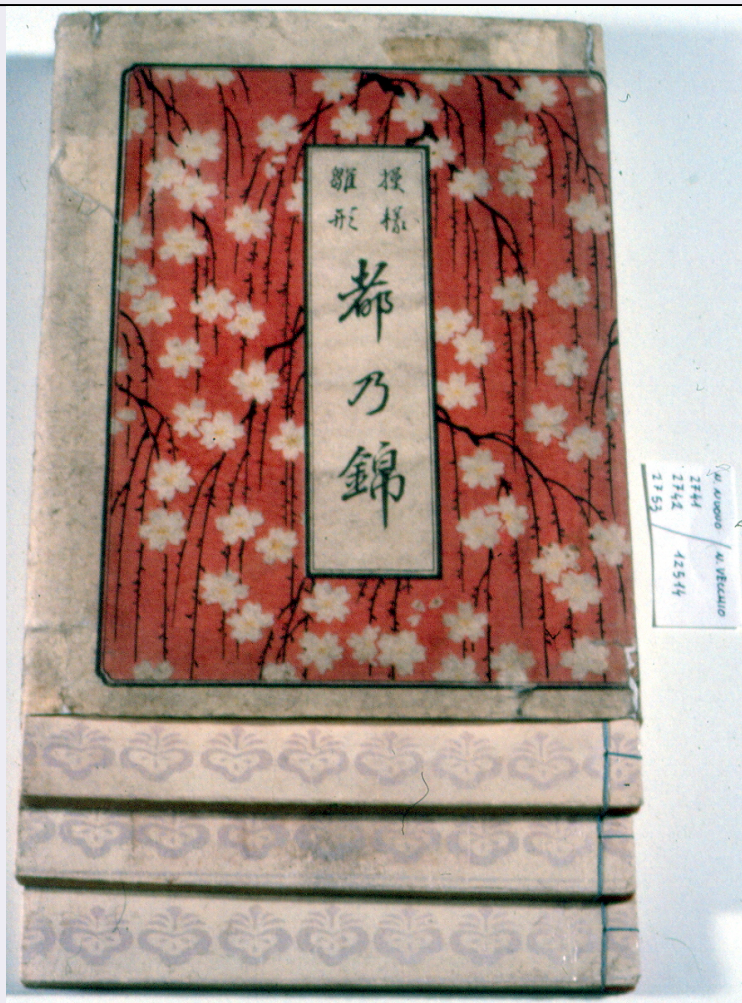 摸様
雛形
都乃錦
N. NUOVO / N. VECCHIO
2741
2742 / 12514
2753